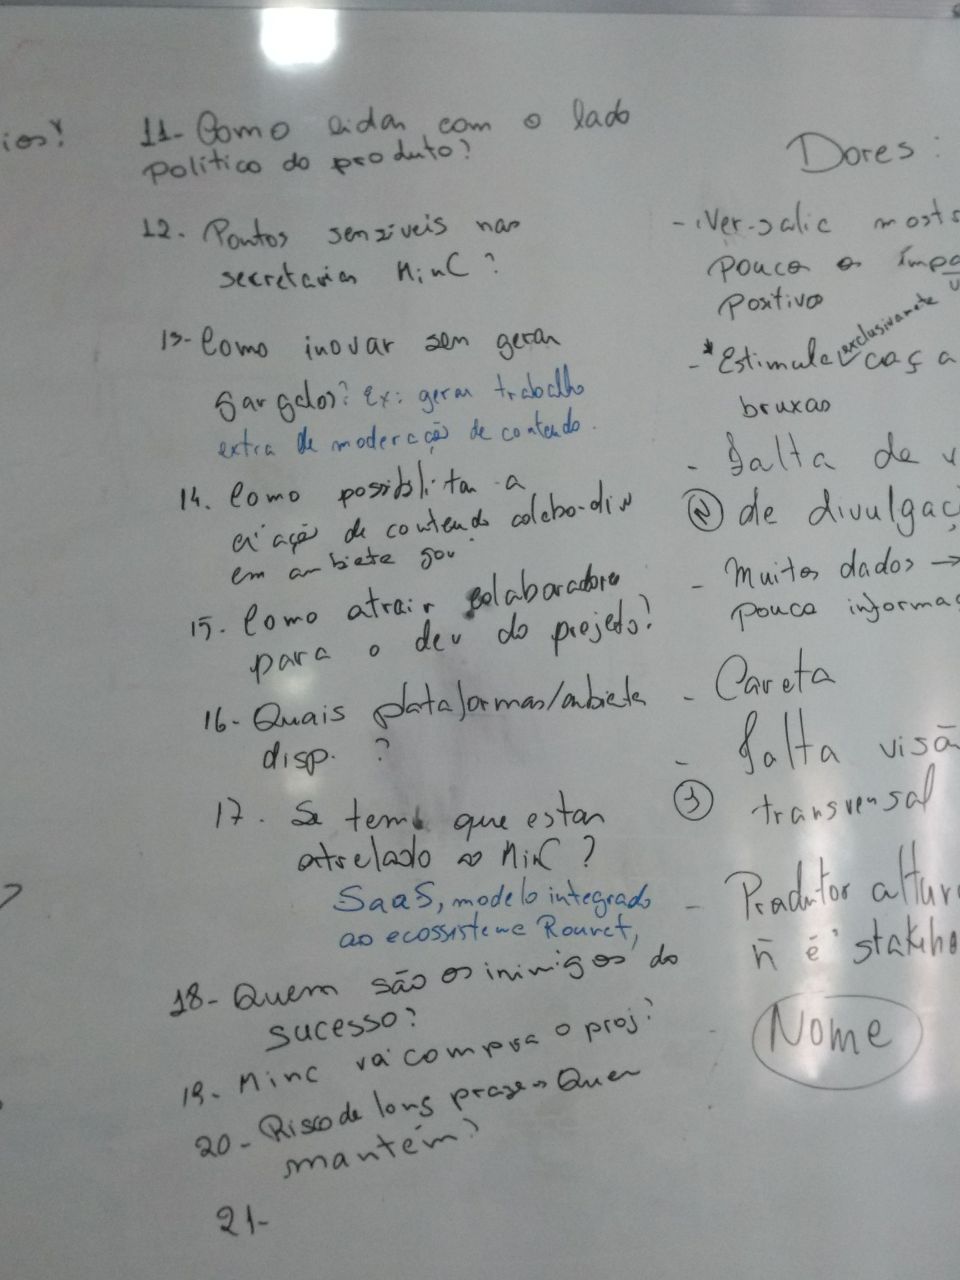 ios?
11- Como lidar com o lado
político do produto?
12. Pontos senzíveis nas
secretarias MinC?
13- Como inovar sem gerar
gargalos? Ex: gerar trabalho
extra de moderação de conteudo.
14. Como possibilitar a
criação de conteudo colabo
em ambiete gov.
15. Como atrair colaboradore
para o dev do projeto?
16- Quais plataformas/ambiete
disp. ?
17. Se tem que estar
atrelado ao MinC?
SaaS, modelo integrado
ao ecossisteme Rouret,
18- Quem são os inimigos do
sucesso?
19. Minc vai compra o proj?
20- Risco de long prazo Quem
mantém?
21-
Dores:
- Ver-salic most
pouco o impa
positivo
- *Estimula exclusivamete caç a
bruxas
- Falta de v
(2) de divulgaç
- Muitos dados →
pouca informaç
- Careta
- Falta visã
(3) transversal
- Produtor altur
ñ é stakeho
- Nome